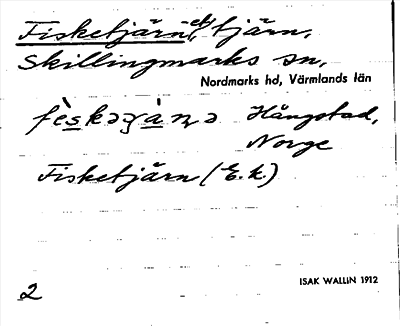 Fisketjärn, -et, tjärn,
Skillingmarks sn,
Nordmarks hd, Värmlands län
Hångstad,
Norge
Fisketjärn (E.k.)
2 ISAK WALLIN 1912